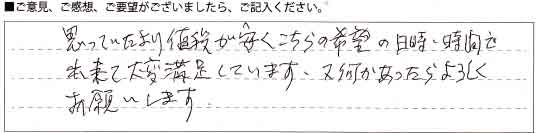 ■ご意見、ご感想、ご要望がございましたら、ご記入ください。
思っていたより値段が安くこちらの希望の日時・時間で
出来て大変満足しています、又何かあったらよろしく
お願いします。